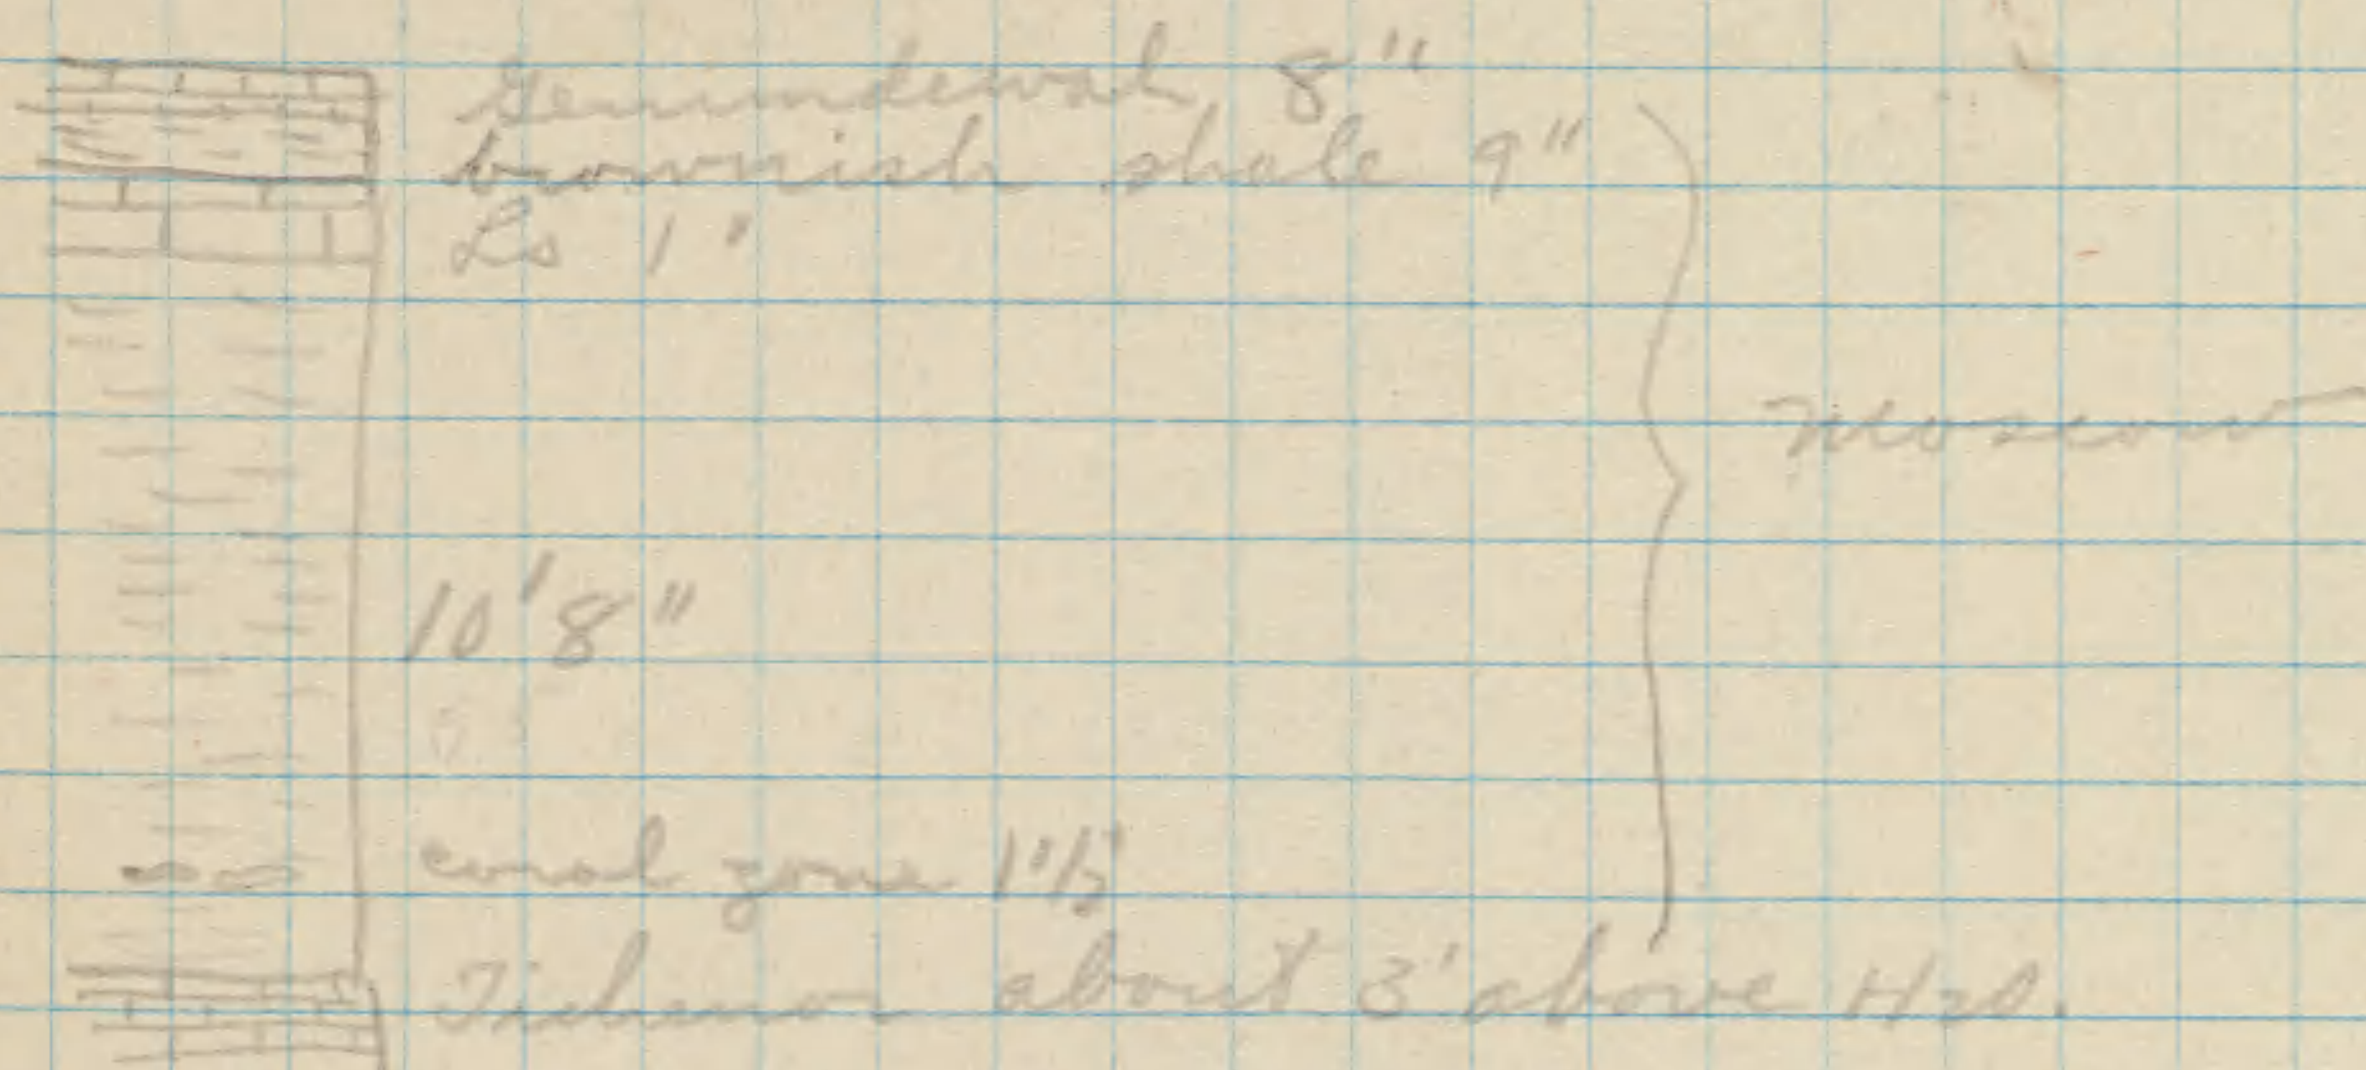 Genundewah 8"
brownish shale 9"
Ls 1"
Moscow
10'8"
coral zone 1"½
Tichenor about 3' above H2O.